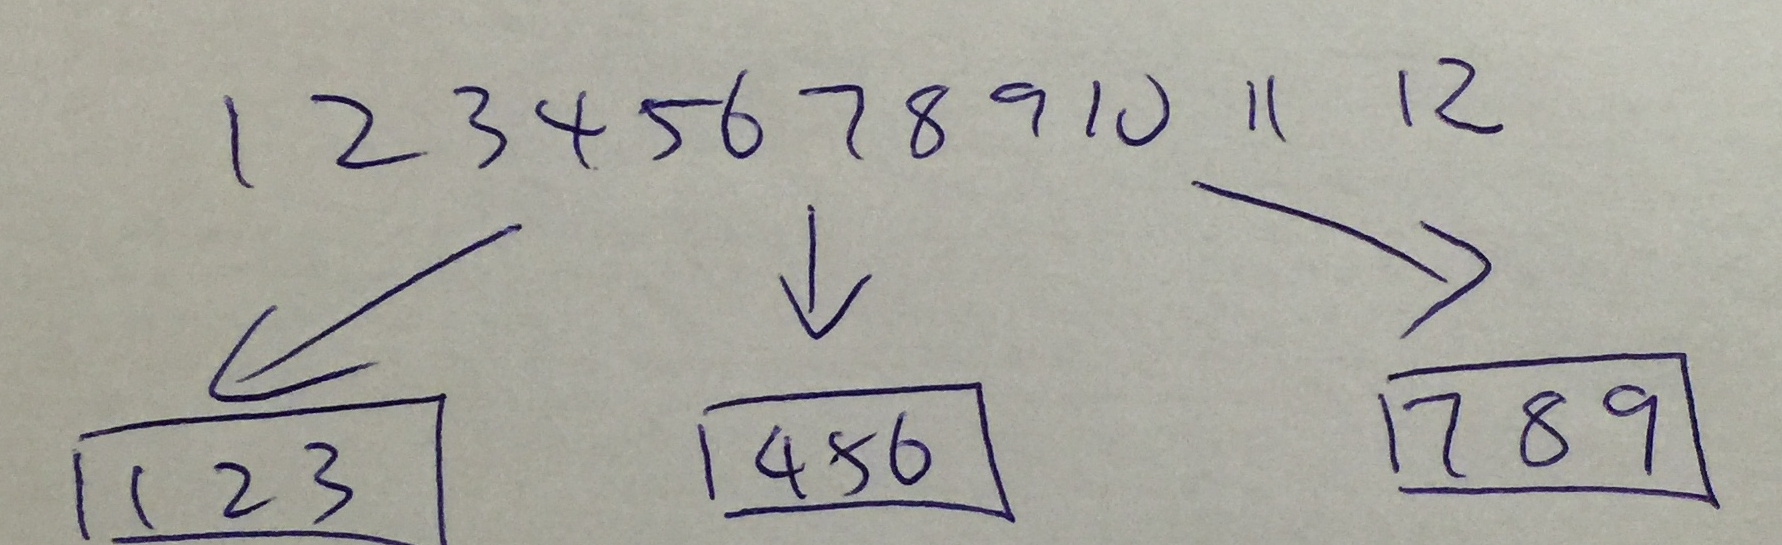 1 2 3 4 5 6 7 8 9 10 11 12
1 2 3 4 5 6 7 8 9